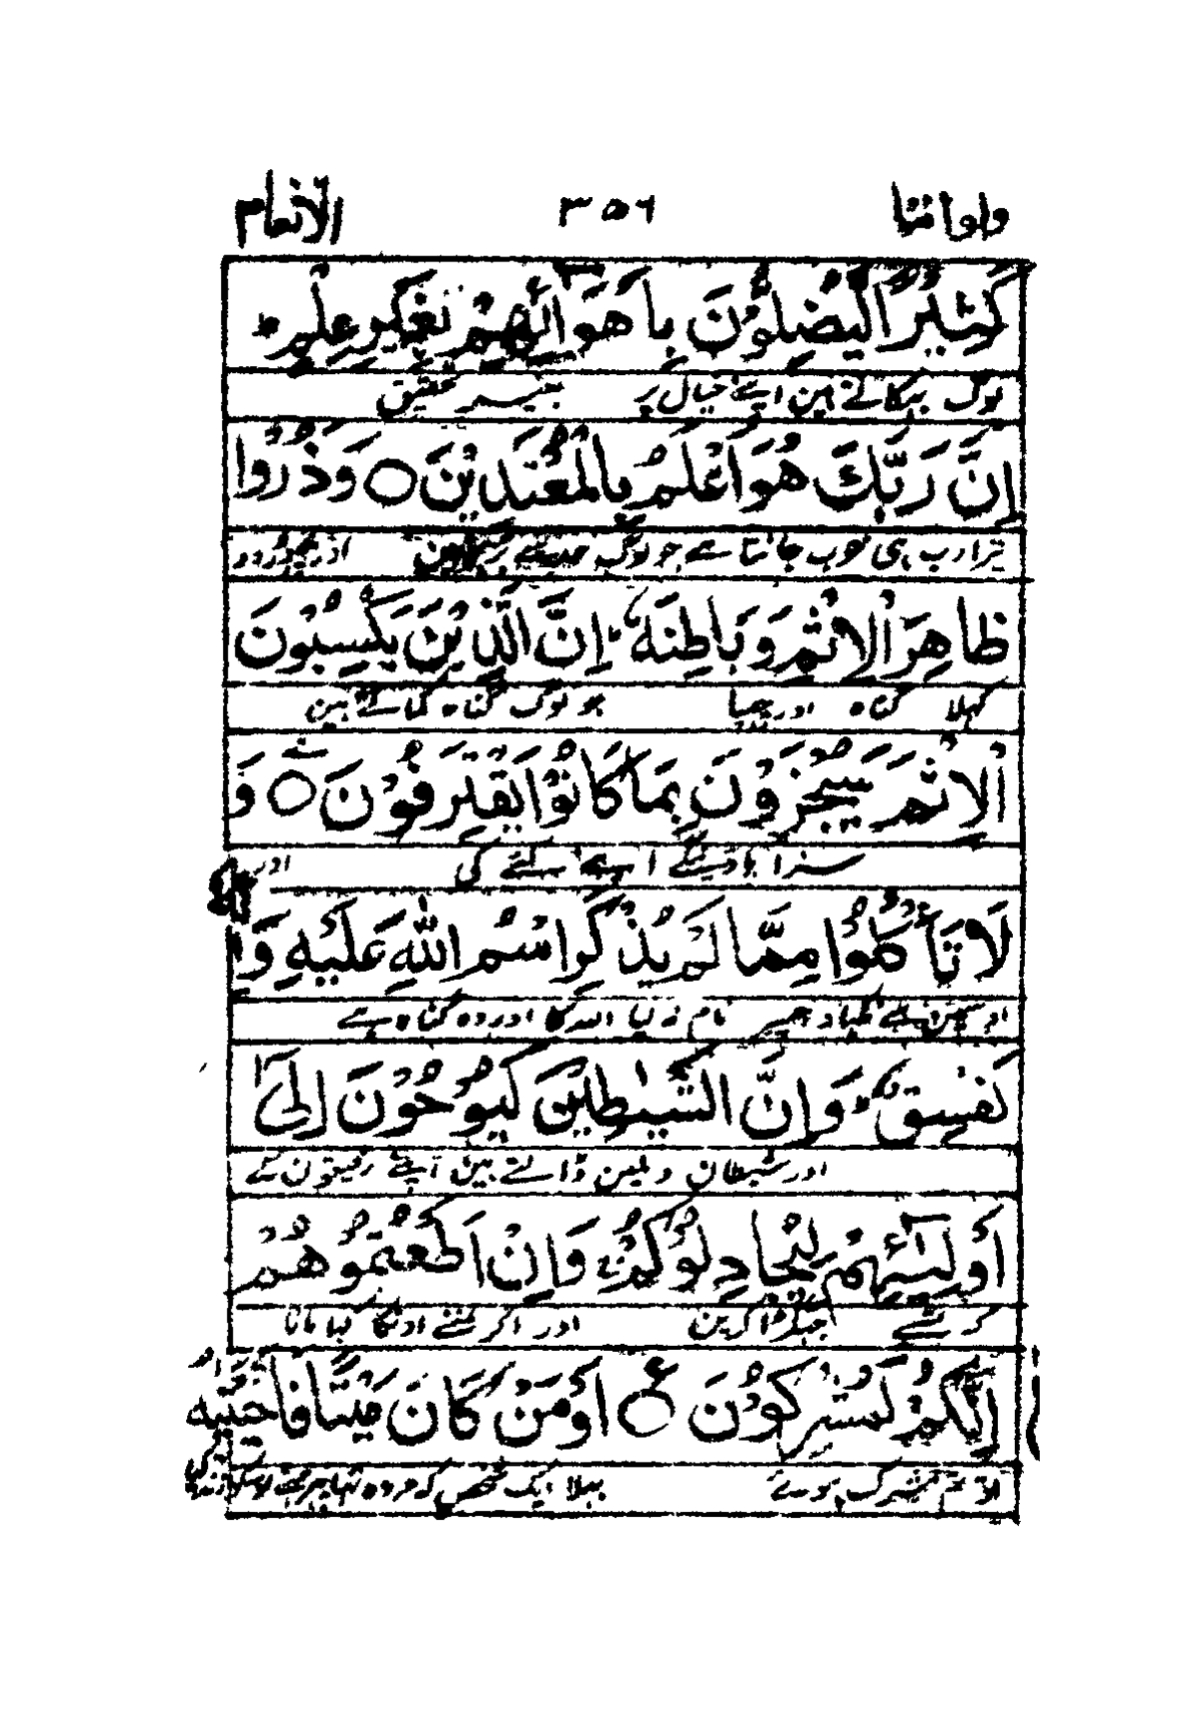 ولواننا ٣٥٦ الانعام
كَثِيْرًا لَّيُضِلُّوْنَ بِاَهْوَآئِهِمْ بِغَيْرِ عِلْمٍ ؕ
لوگ بہکاتے ہین اپنے خیال پر بغیر تحقیق
اِنَّ رَبَّكَ هُوَ اَعْلَمُ بِالْمُعْتَدِيْنَ ○ وَذَرُوْا
تیرا رب ہی خوب جانتا ہے جو لوگ حد سے اور چھوڑ دو
ظَاهِرَ الْاِثْمِ وَبَاطِنَهٗ ؕ اِنَّ الَّذِيْنَ يَكْسِبُوْنَ
کہلا گناہ اور چھپا جو لوگ گناہ کماتے ہین
الْاِثْمَ سَيُجْزَوْنَ بِمَا كَانُوْا يَقْتَرِفُوْنَ ○ وَ
سزا پاوینگے اپنے کئے کی اور
لَا تَاْكُلُوْا مِمَّا لَمْ يُذْكَرِ اسْمُ اللّٰهِ عَلَيْهِ وَاِ
نام نہ لیا اللہ کا اور وہ گناہ ہے
لَفِسْقٌ ؕ وَاِنَّ الشَّيٰطِيْنَ لَيُوْحُوْنَ اِلٰٓى
اور شیطان دلمین ڈالتے ہین اپنے رفیقون کے
اَوْلِيٰٓـئِهِمْ لِيُجَادِلُوْكُمْ ۚ وَاِنْ اَطَعْتُمُوْهُمْ
کہ تم سے جھگڑا کرین اور اگر تمنے اونکا کہا مانا
اِنَّكُمْ لَمُشْرِكُوْنَ ○ع اَوَمَنْ كَانَ مَيْتًا فَاَحْيَيْنٰهُ
تو تم مشرک ہوے بہلا ایک شخص کہ مردہ تھا پھر ہمنے اوسکو زندہ کیا